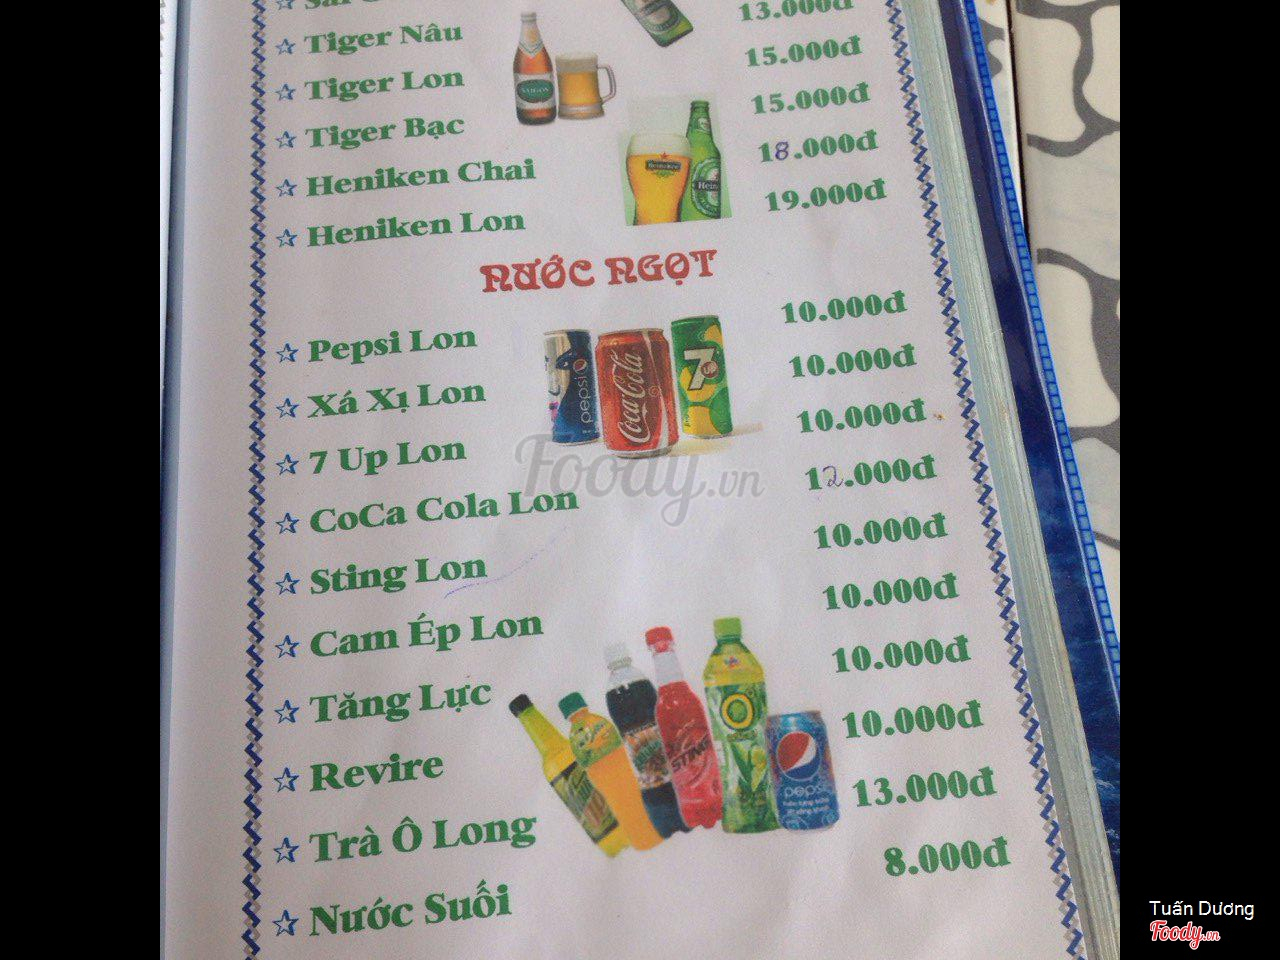 13.000đ
☆ Tiger Nâu 15.000đ
☆ Tiger Lon 15.000đ
☆ Tiger Bạc 18.000đ
☆ Heniken Chai 19.000đ
☆ Heniken Lon
SAIGON
Heineken
NƯỚC NGỌT
☆ Pepsi Lon 10.000đ
☆ Xá Xị Lon 10.000đ
☆ 7 Up Lon 10.000đ
☆ CoCa Cola Lon 12.000đ
☆ Sting Lon 10.000đ
☆ Cam Ép Lon 10.000đ
☆ Tăng Lực 10.000đ
☆ Revire 10.000đ
☆ Trà Ô Long 13.000đ
☆ Nước Suối 8.000đ
pepsi
Coca-Cola
7 UP
Foody.vn
STING
pepsi
Tuấn Dương
Foody.vn